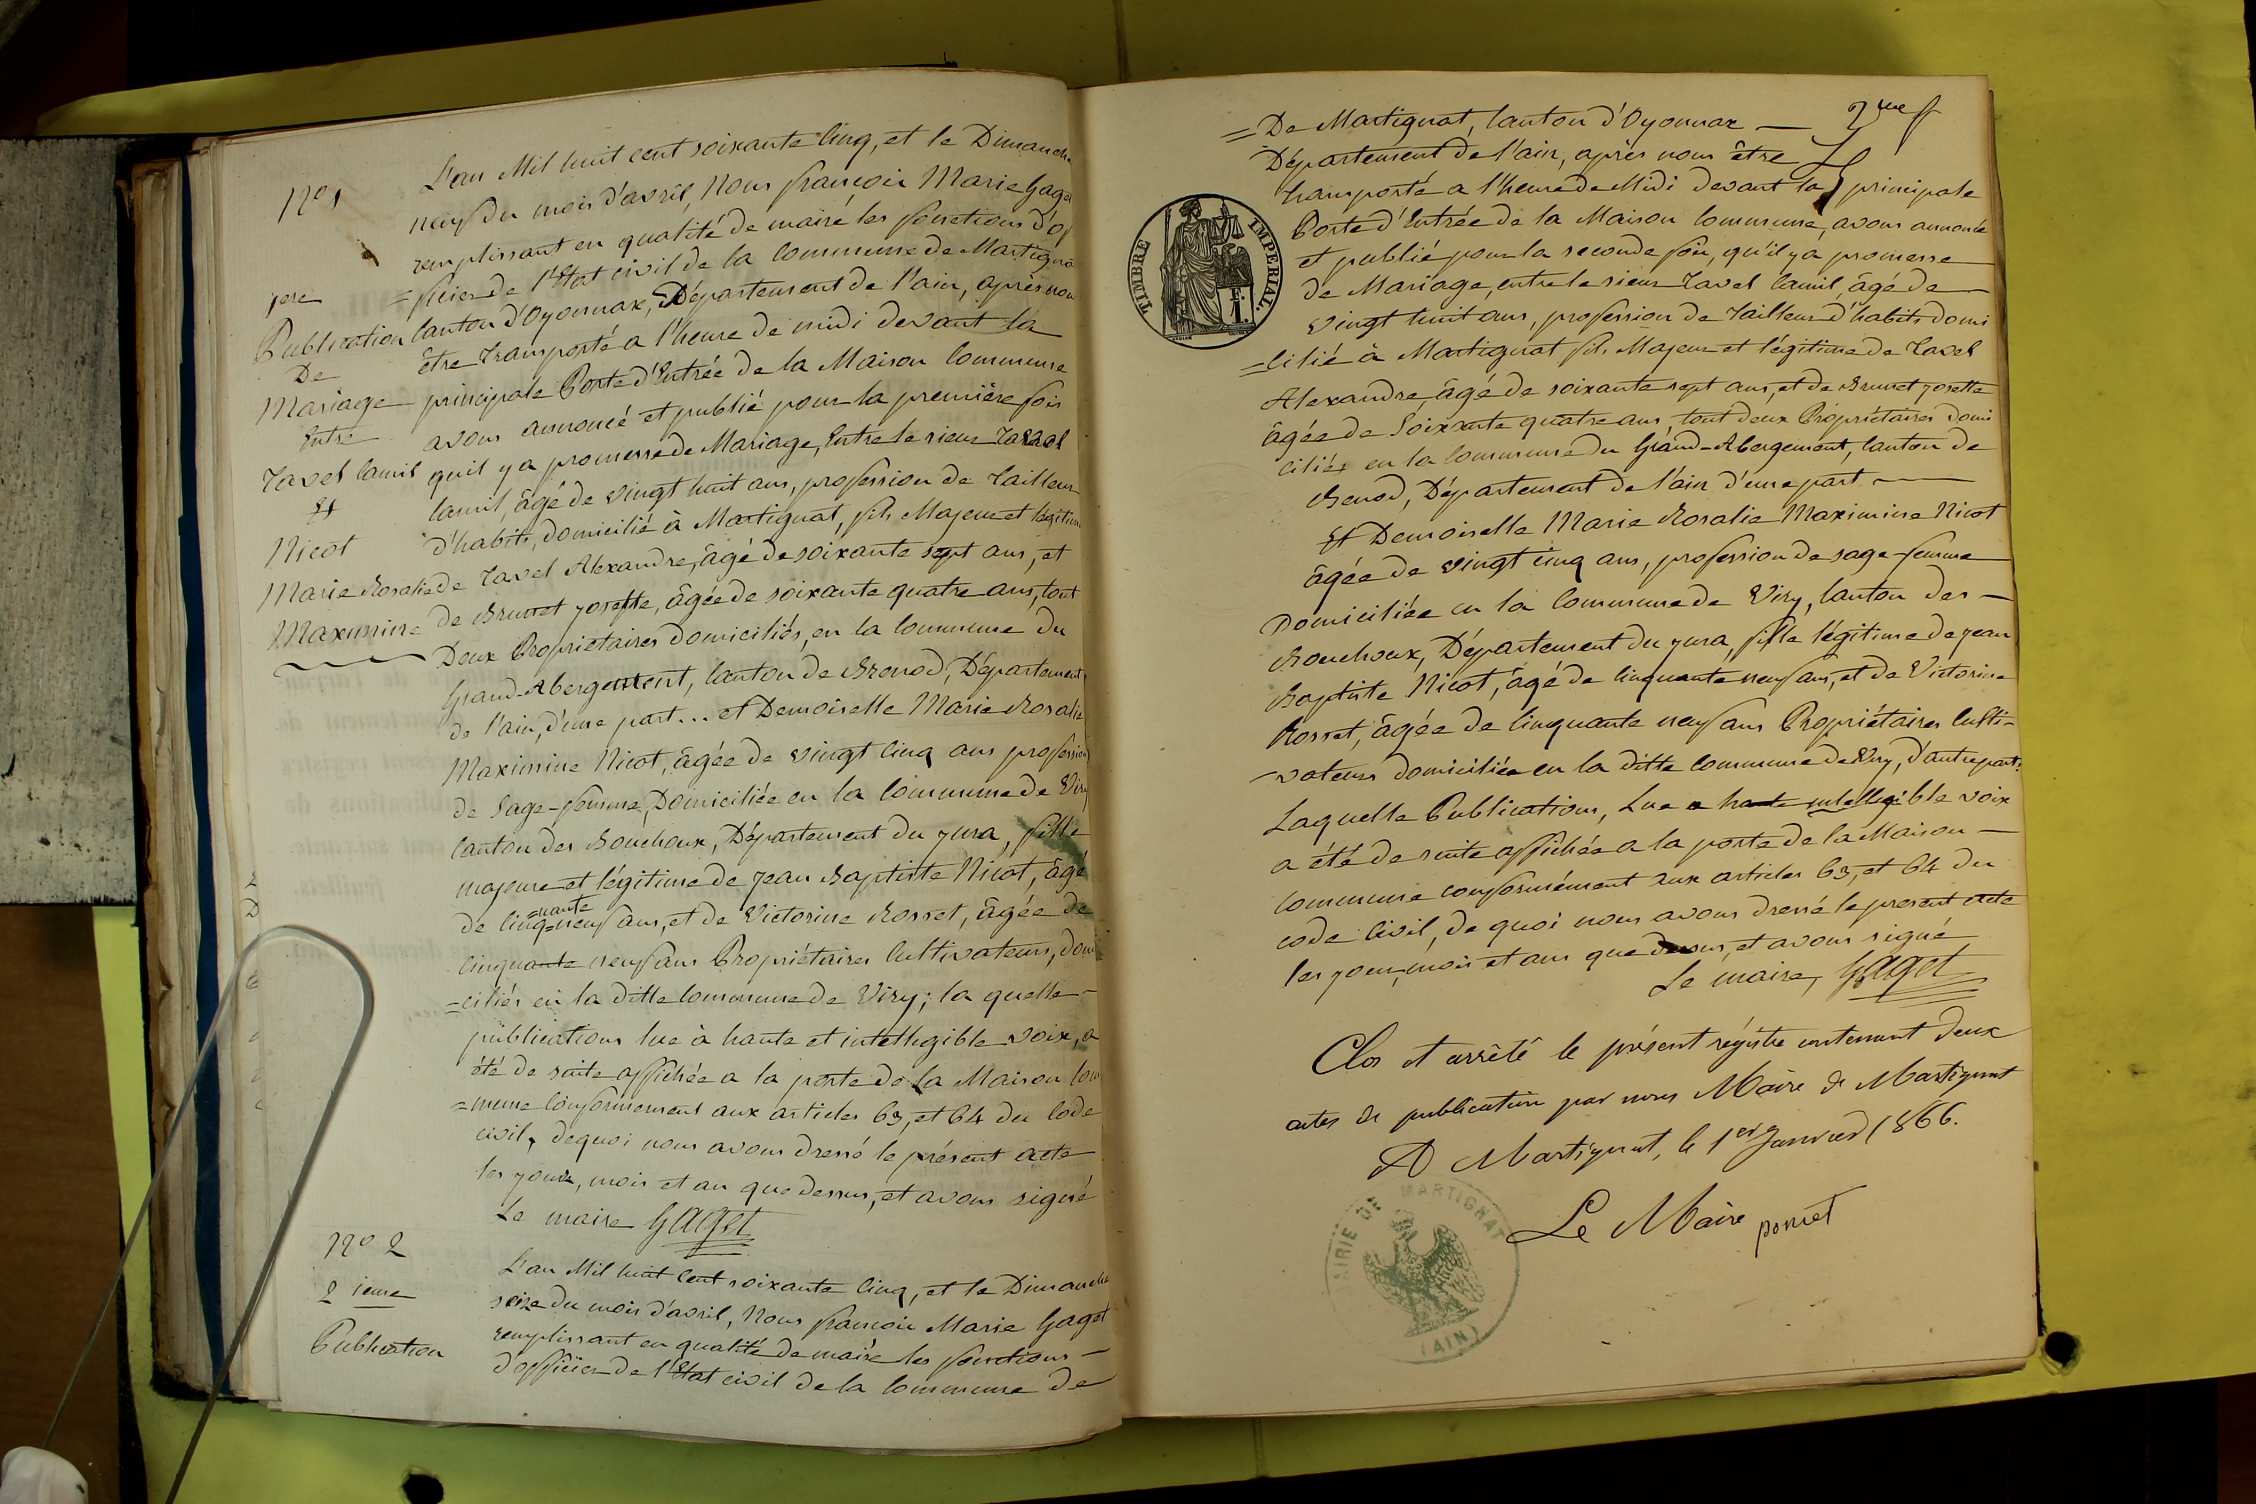 N° 1
1ere
Publication
De
Mariage
Entre
Tavel Camil
Et
Nicot
Marie Rosalie
Maximine
L'an Mil huit cent soixante cinq, et le Dimanche
neuf du mois d'avril, Nous françois Marie Gaget
remplissant en qualité de maire les fonctions d'of
=ficier de l'Etat civil de la commune de Martignat
Canton d'Oyonnax, Département de l'ain, après nous
être transporté a l'heure de midi devant la
principale Porte d'Entrée de la Maison Commune
avons annoncé et publié pour la première fois
qu'il y a promesse de Mariage, Entre le sieur Tavel
Camil, âgé de vingt huit ans, profession de Tailleur
d'habits, domicilié à Martignat, fils Majeur et légitime
de Tavel Alexandre, âgé de soixante sept ans, et
de Brunet josette, âgée de soixante quatre ans, tout
Deux Propriétaires domiciliés, en la Commune du
Grand-Abergement, Canton de Brenod, Département
de l'ain, d'une part... et Demoiselle Marie Rosalie
Maximine Nicot, âgée de vingt Cinq ans profession
de Sage-femme, Domiciliée en la Commune de Viry
Canton des Bouchoux, Département du jura, fille
majeure et légitime de jean Baptiste Nicot, âgé
de Cinq=uante=neuf ans, et de Victorine Rosset, âgée de
Cinquante neuf ans Propriétaires Cultivateurs, domi
=ciliés en la ditte Commune de Viry; la quelle
publications lue à haute et intelligible voix, a
été de suite affichée a la porte de la Maison Com
=mune Conformement aux articles 63, et 64 du Code
civil, de quoi nous avons dressé le présent acte
les jour, mois et an que dessus, et avons signé
Le maire Gaget
N° 2
2 ieme
Publication
L'an Mil huit Cent soixante Cinq, et le Dimanche
seize du mois d'avril, Nous françois Marie Gaget
remplissant en qualité de maire les fonctions
d'officier de l'Etat civil de la Commune de
=De Martignat, Canton d'Oyonnax
Département de l'ain, après nous être
transporté a l'heure de Midi devant la principale
Porte d'Entrée de la Maison Commune, avons annoncé
et publié pour la seconde fois, qu'il y a promesse
de Mariage, entre le sieur Tavel Camil, âgé de
vingt huit ans, profession de Tailleur d'habits domi
=cilié à Martignat fils Majeur et légitime de Tavel
Alexandre, âgé de soixante sept ans, et de Brunet josette
âgée de Soixante quatre ans, tout deux Propriétaires domi
ciliés en la Commune du Grand-Abergement, Canton de
Brenod, Département de l'ain d'une part
Et Demoiselle Marie Rosalie Maximine Nicot
âgée de vingt Cinq ans, profession de sage-femme
Domiciliée en la Commune de Viry, Canton des
Bouchoux, Département du jura, fille légitime de jean
Baptiste Nicot, âgé de Cinquante neuf ans, et de Victorine
Rosset, âgée de Cinquante neuf ans Propriétaires Culti-
-vateurs domiciliée en la ditte commune de Viry, d'autre part:
Laquelle Publications, Lue a haute intelligible voix
a été de suite affichée a la porte de la Maison
Commune conformément aux articles 63, et 64 du
code Civil, de quoi nous avons dressé le present acte
les jour, mois et ans que dessus, et avons signé
Le maire, Gaget
Clos et arrêté le présent régistre contenant deux
actes de publication par nous Maire de Martignat
A Martignat, le 1er Janvier 1866.
Le Maire poncet
TIMBRE IMPERIAL.
MAIRIE DE MARTIGNAT
(AIN)